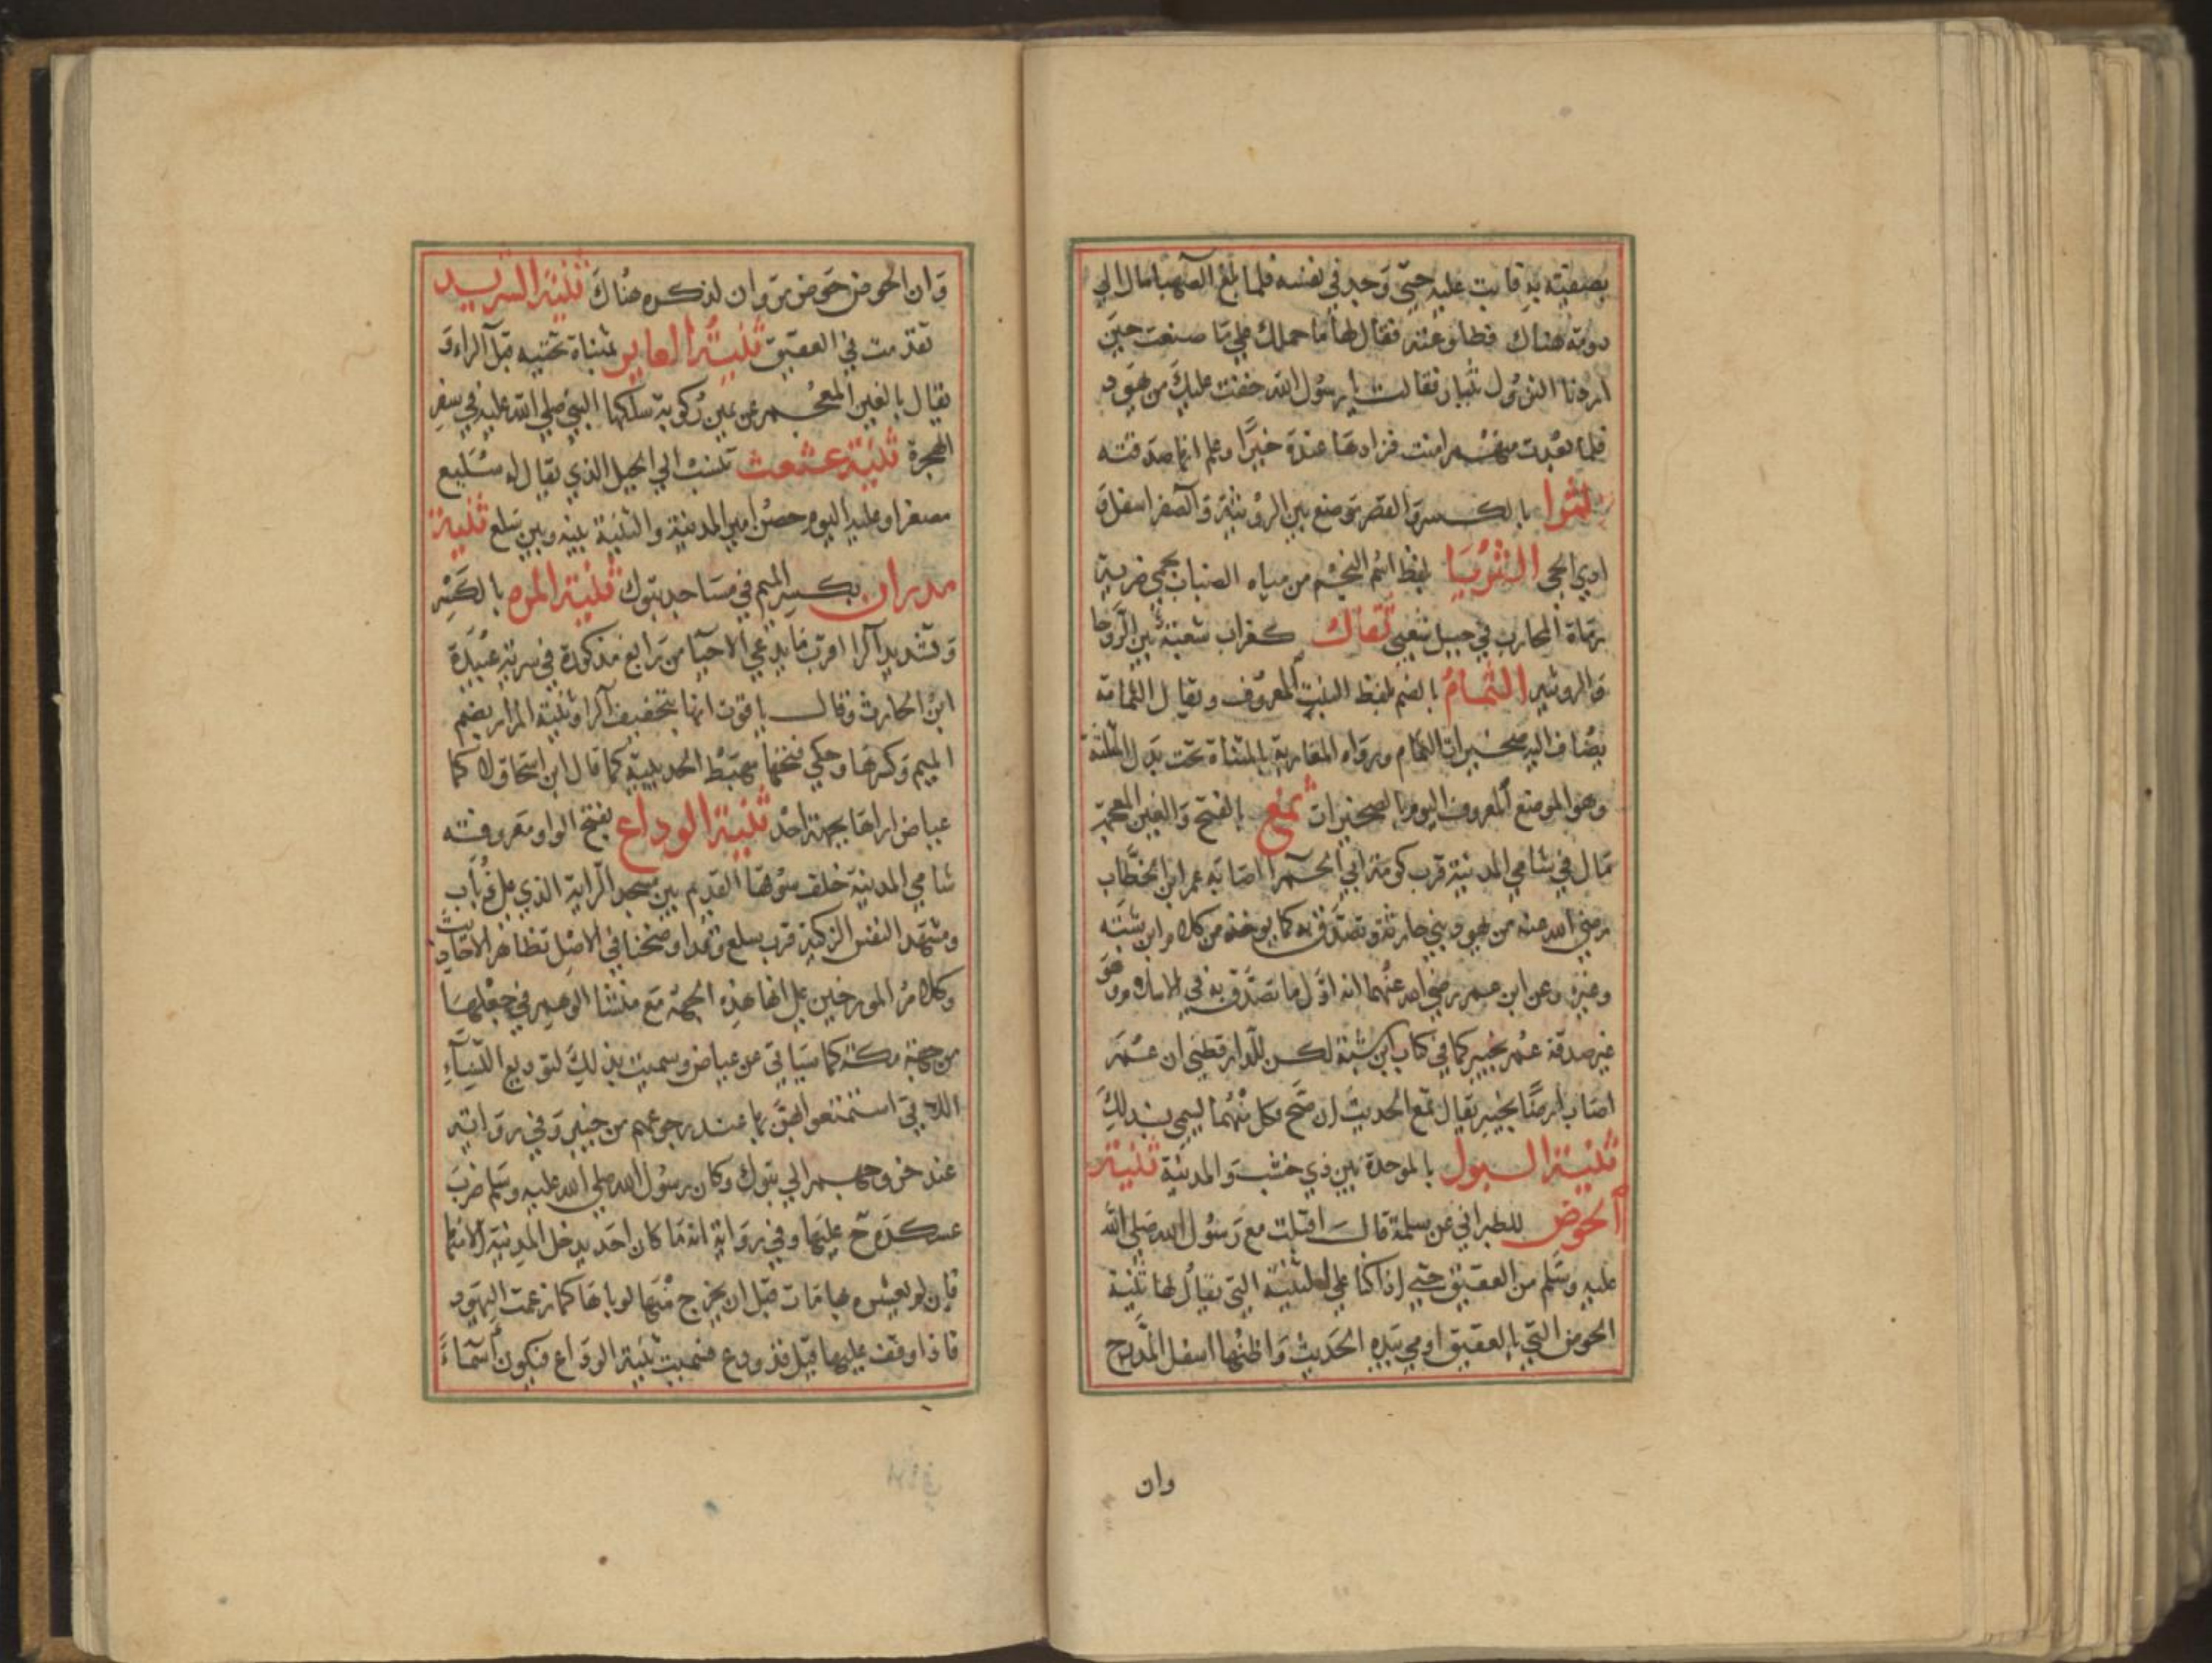 بصفيته به فابت عليه حتى وجد في نفسه فلما بلغ الصهبا مال الى
دومة هناك فطاوعته فقال لها ما حملك على ما صنعت حين
اردنا النزول ثبار فقالت يا رسول الله خفت عليك من يهود
فلما بعدت منهم امنت فزادها عنده خيرا وعلم انها صدقته
ثثرا بالكسر والقصر موضع بين الرويثة والصفرا اسفل
وادي الجي الثريا لفظ اسم النجم من مياه الضباب بحمى ضرية
ومياه المحارب في جبل شعبى ثقاك كغراب شعبة بين الروحا
والرويثه الثمام بالضم لفظ النبت المعروف ويقال الثمامة
يضاف اليه صخيرات الثمام ورواه المغاربة بالمثناة تحت بدل المثلثة
وهو الموضع المعروف اليوم بالصخيرات ثمغ بالفتح والغين المعجمة
مال في شامي المدينة قرب كومة ابي الحمرا اصابه عمر ابن الخطاب
رضي الله عنه من يهود بني حارثة وتصدق به كما يوخذ من كلام ابن شبه
وغيره وعن ابن عمر رضي الله عنهما انه اول ما تصدق به في الاسلام وهو
غير صدقة عمر بخيبر كما في كتاب ابن شبة لكن للدارقطني ان عمر
اصاب ارضا بخيبر يقال ثمغ الحديث ان صح فكل منهما ليسمى بذلك
ثنية البول بالموحدة بين ذي خشب والمدينة ثنية
الحوض للطبراني عن سلمة قال اقبلت مع رسول الله صلى الله
عليه وسلم من العقيق حتى اذا كنا على الثنية التي يقال لها ثنية
الحوض التي بالعقيق اومى بيده الحديث واظنها اسفل المدرج
وان
وان الحوض حوض مروان لذكره هناك ثنية الشريد
تقدمت في العقيق ثنية العاير بمثناة تحتيه قبل الراء و
يقال بالغين المعجمه عن يمين ركوبة سلكها النبي صلى الله عليه في سفر
الهجرة ثنية عثعث تنسب الى الجبل الذي يقال له سليع
مصغرا وعليه اليوم حصن امير المدينة والثنية بينه وبين سلع ثنية
مدران بكسر الميم في مساجد تبوك ثنية المره بالكسر
وتشديد الرا قرب ما يدعى الاحيا من رابغ مذكورة في سرية عبيدة
ابن الحارث وقال ياقوت انها بتخفيف الرا وثنية المرار بضم
الميم وكسرها وحكي فتحها مهبط الحديبية كما قال ابن اسحاق لا كما
عياض اراها بجهة احد ثنية الوداع بفتح الواو معروفته
شامي المدينة خلف سوقها القديم بين مسجد الراية الذي على ذباب
ومشهد النفس الزكية قرب سلع وقد اوضحنا في الاصل تظافر الاحاديث
وكلام المورخين على انها هذه الجهة مع منشا الوهم في جعلها
من جهة مكة كما سياتي عن عياض وسميت بذلك لتوديع النساء
اللاتي استمتعوا بهن بها عند رجوعهم من خيبر وفي رواية
عند خروجهم الى تبوك وكان رسول الله صلى الله عليه وسلم ضرب
عسكره ح عليها وفي رواية انه ما كان احد يدخل المدينة الا منها
فان لم يعشر بها مات قبل ان يخرج منها لوباها كما زعمت اليهود
فاذا وقف عليها قيل قد ودع فسميت ثنية الوداع فيكون اسماء